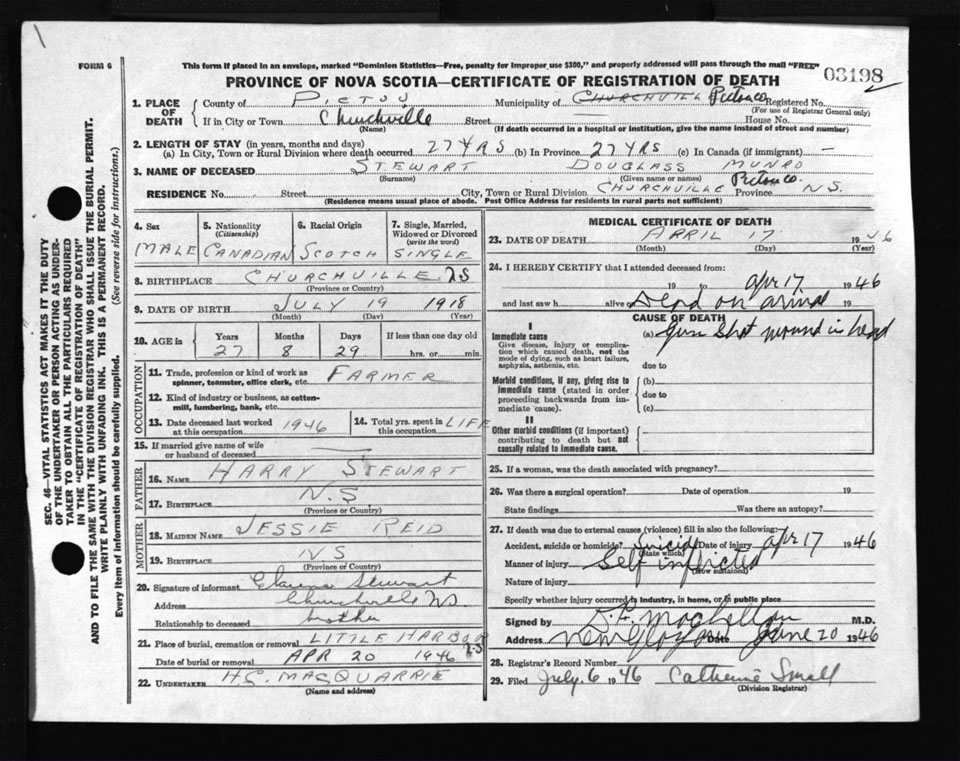 FORM 6
This form if placed in an envelope, marked "Dominion Statistics—Free, penalty for improper use $300," and properly addressed will pass through the mail "FREE"
PROVINCE OF NOVA SCOTIA—CERTIFICATE OF REGISTRATION OF DEATH
03198
SEC. 46—VITAL STATISTICS ACT MAKES IT THE DUTY
OF THE UNDERTAKER OR PERSON ACTING AS UNDER-
TAKER TO OBTAIN ALL THE PARTICULARS REQUIRED
IN THE "CERTIFICATE OF REGISTRATION OF DEATH"
AND TO FILE THE SAME WITH THE DIVISION REGISTRAR WHO SHALL ISSUE THE BURIAL PERMIT.
WRITE PLAINLY WITH UNFADING INK. THIS IS A PERMANENT RECORD.
Every item of information should be carefully supplied. (See reverse side for instructions.)
1. PLACE OF DEATH County of PICTOU Municipality of CHURCHVILL Pictou co Registered No.
(For use of Registrar General only)
If in City or Town Churchville Street House No.
(Name) (If death occurred in a hospital or institution, give the name instead of street and number)
2. LENGTH OF STAY (in years, months and days)
(a) In City, Town or Rural Division where death occurred 27 YRS (b) In Province 27 YRS (c) In Canada (if immigrant) —
3. NAME OF DECEASED STEWART DOUGLASS MUNRO
(Surname) (Given name or names)
RESIDENCE No. Street City, Town or Rural Division CHURCHVILLE Pictou co. Province N.S.
(Residence means usual place of abode. Post Office Address for residents in rural parts not sufficient)
4. Sex 5. Nationality (Citizenship) 6. Racial Origin 7. Single, Married, Widowed or Divorced (write the word)
MALE CANADIAN SCOTCH SINGLE
8. BIRTHPLACE CHURCHVILLE NS
(Province or Country)
9. DATE OF BIRTH JULY 19 1918
(Month) (Day) (Year)
10. AGE in Years Months Days If less than one day
27 8 29 hrs. or min.
OCCUPATION
11. Trade, profession or kind of work as spinner, teamster, office clerk, etc. FARMER
12. Kind of industry or business, as cotton-mill, lumbering, bank, etc.
13. Date deceased last worked at this occupation 1946
14. Total yrs. spent in this occupation LIFE
15. If married give name of wife or husband of deceased
FATHER
16. NAME HARRY STEWART
17. BIRTHPLACE N.S.
(Province or Country)
MOTHER
18. MAIDEN NAME JESSIE REID
19. BIRTHPLACE NS
(Province or Country)
20. Signature of informant Stewart
Address Churchville NS
Relationship to deceased
21. Place of burial, cremation or removal LITTLE HARBOR N.S
Date of burial or removal APR 20 1946
22. UNDERTAKER H.C. MACQUARRIE
(Name and address)
MEDICAL CERTIFICATE OF DEATH
23. DATE OF DEATH APRIL 17 1946
(Month) (Day) (Year)
24. I HEREBY CERTIFY that I attended deceased from:
19 to Apr 17 1946
and last saw h alive on Dead on arrival 19
CAUSE OF DEATH
I
Immediate cause
Give disease, injury or complication which caused death, not the mode of dying, such as heart failure, asphyxia, asthenia, etc.
(a) Gun shot wound in head
due to
Morbid conditions, if any, giving rise to immediate cause (stated in order proceeding backwards from immediate cause).
(b)
due to
(c)
II
Other morbid conditions (if important) contributing to death but not causally related to immediate cause.
25. If a woman, was the death associated with pregnancy?
26. Was there a surgical operation? Date of operation 19
State findings Was there an autopsy?
27. If death was due to external causes (violence) fill in also the following:
Accident, suicide or homicide? Suicide Date of injury Apr 17 1946
(State which)
Manner of injury Self inflicted
(How sustained)
Nature of injury
Specify whether injury occurred in industry, in home, or in public place
Signed by M.D.
Address New Glasgow Date June 20 1946
28. Registrar's Record Number
29. Filed July 6 1946 Catherine Small
(Division Registrar)